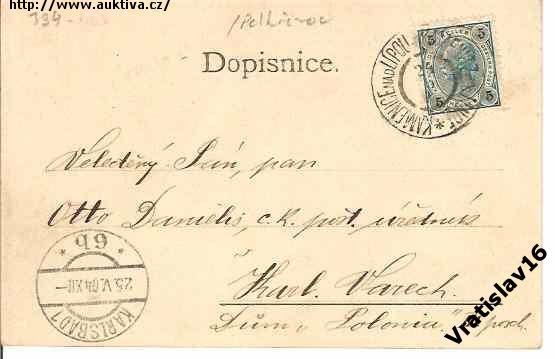 http://www.auktiva.cz/
Dopisnice.
KAMENICE NAD LIPOU
5 5
5 5
Velectěný Pán, pan
Otto Danielis, c.k. pošt. úředník
Karl. Varech.
Dům „Polonia"
KARLSBAD 1
25.V.04 XII-
* 6b *
Vratislav16